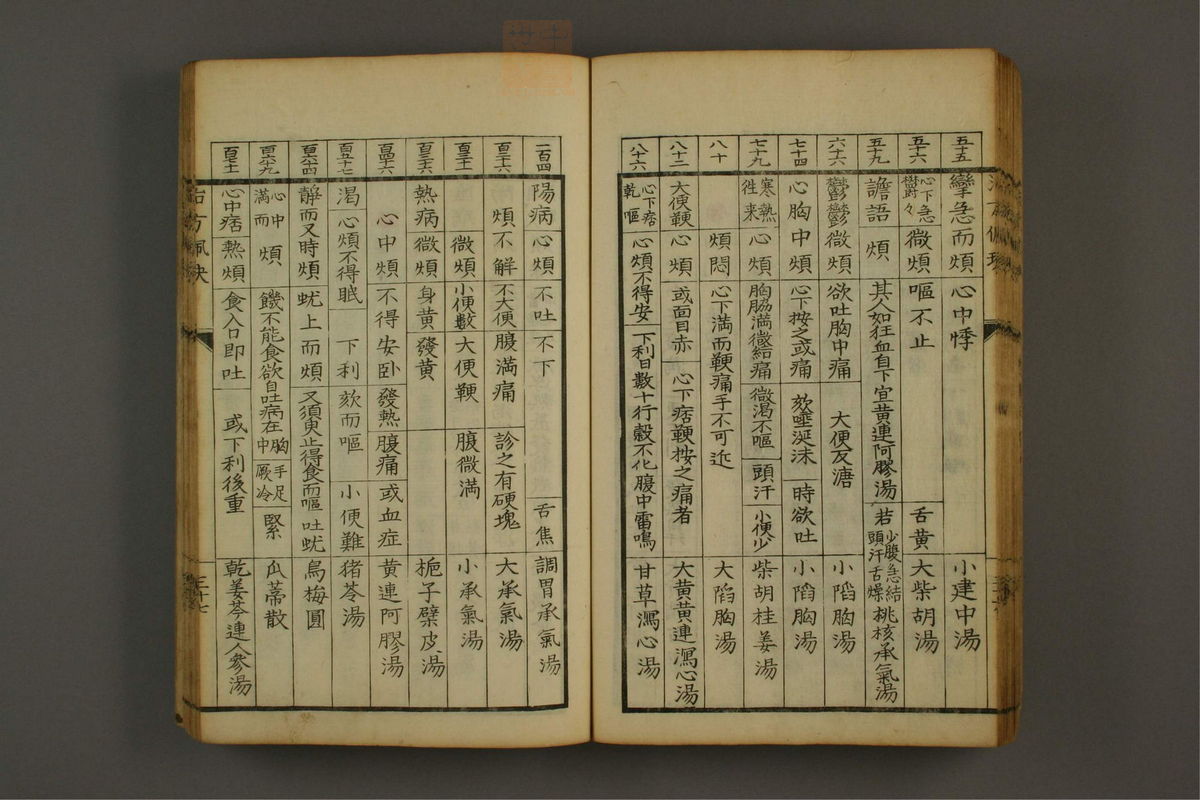 五十五 攣急而煩 心中悸 小建中湯
五十六 心下急鬱々 微煩 嘔不止 舌黄 大柴胡湯
五十九 譫語 煩 其人如狂血自下宜黄連阿膠湯 若少腹急結頭汗舌燥 桃核承氣湯
六十六 鬱鬱微煩 欲吐胸中痛 大便反溏 小陷胸湯
七十四 心胸中煩 心下按之或痛 欬唾涎沫 時欲吐 小陷胸湯
七十九 寒熱徃来 心煩 胸脇満微結痛 微渴不嘔 頭汗 小便少 柴胡桂姜湯
八十 煩悶 心下満而鞕痛手不可近 大陷胸湯
八十三 大便鞕 心煩 或面目赤 心下痞鞕按之痛者 大黄黄連瀉心湯
八十六 心下痞乾嘔 心煩不得安 下利日数十行穀不化腹中雷鳴 甘草瀉心湯
一百四 陽病心煩 不吐不下 舌焦 調胃承氣湯
煩不解 不大便腹満痛 診之有硬塊 大承氣湯
微煩 小便數大便鞕 腹微満 小承氣湯
熱病微煩 身黄發黄 梔子檗皮湯
心中煩 不得安卧 發熱腹痛或血症 黄連阿膠湯
渴 心煩不得眠 下利 欬而嘔 小便難 猪苓湯
靜而又時煩 蚘上而煩 又須臾止得食而嘔 吐蚘 烏梅圓
心中満而煩 饑不能食欲自吐病在胸中 手足厥冷 緊 瓜蒂散
心中痞熱煩 食入口即吐 或下利後重 乾姜芩連人参湯
治方佩